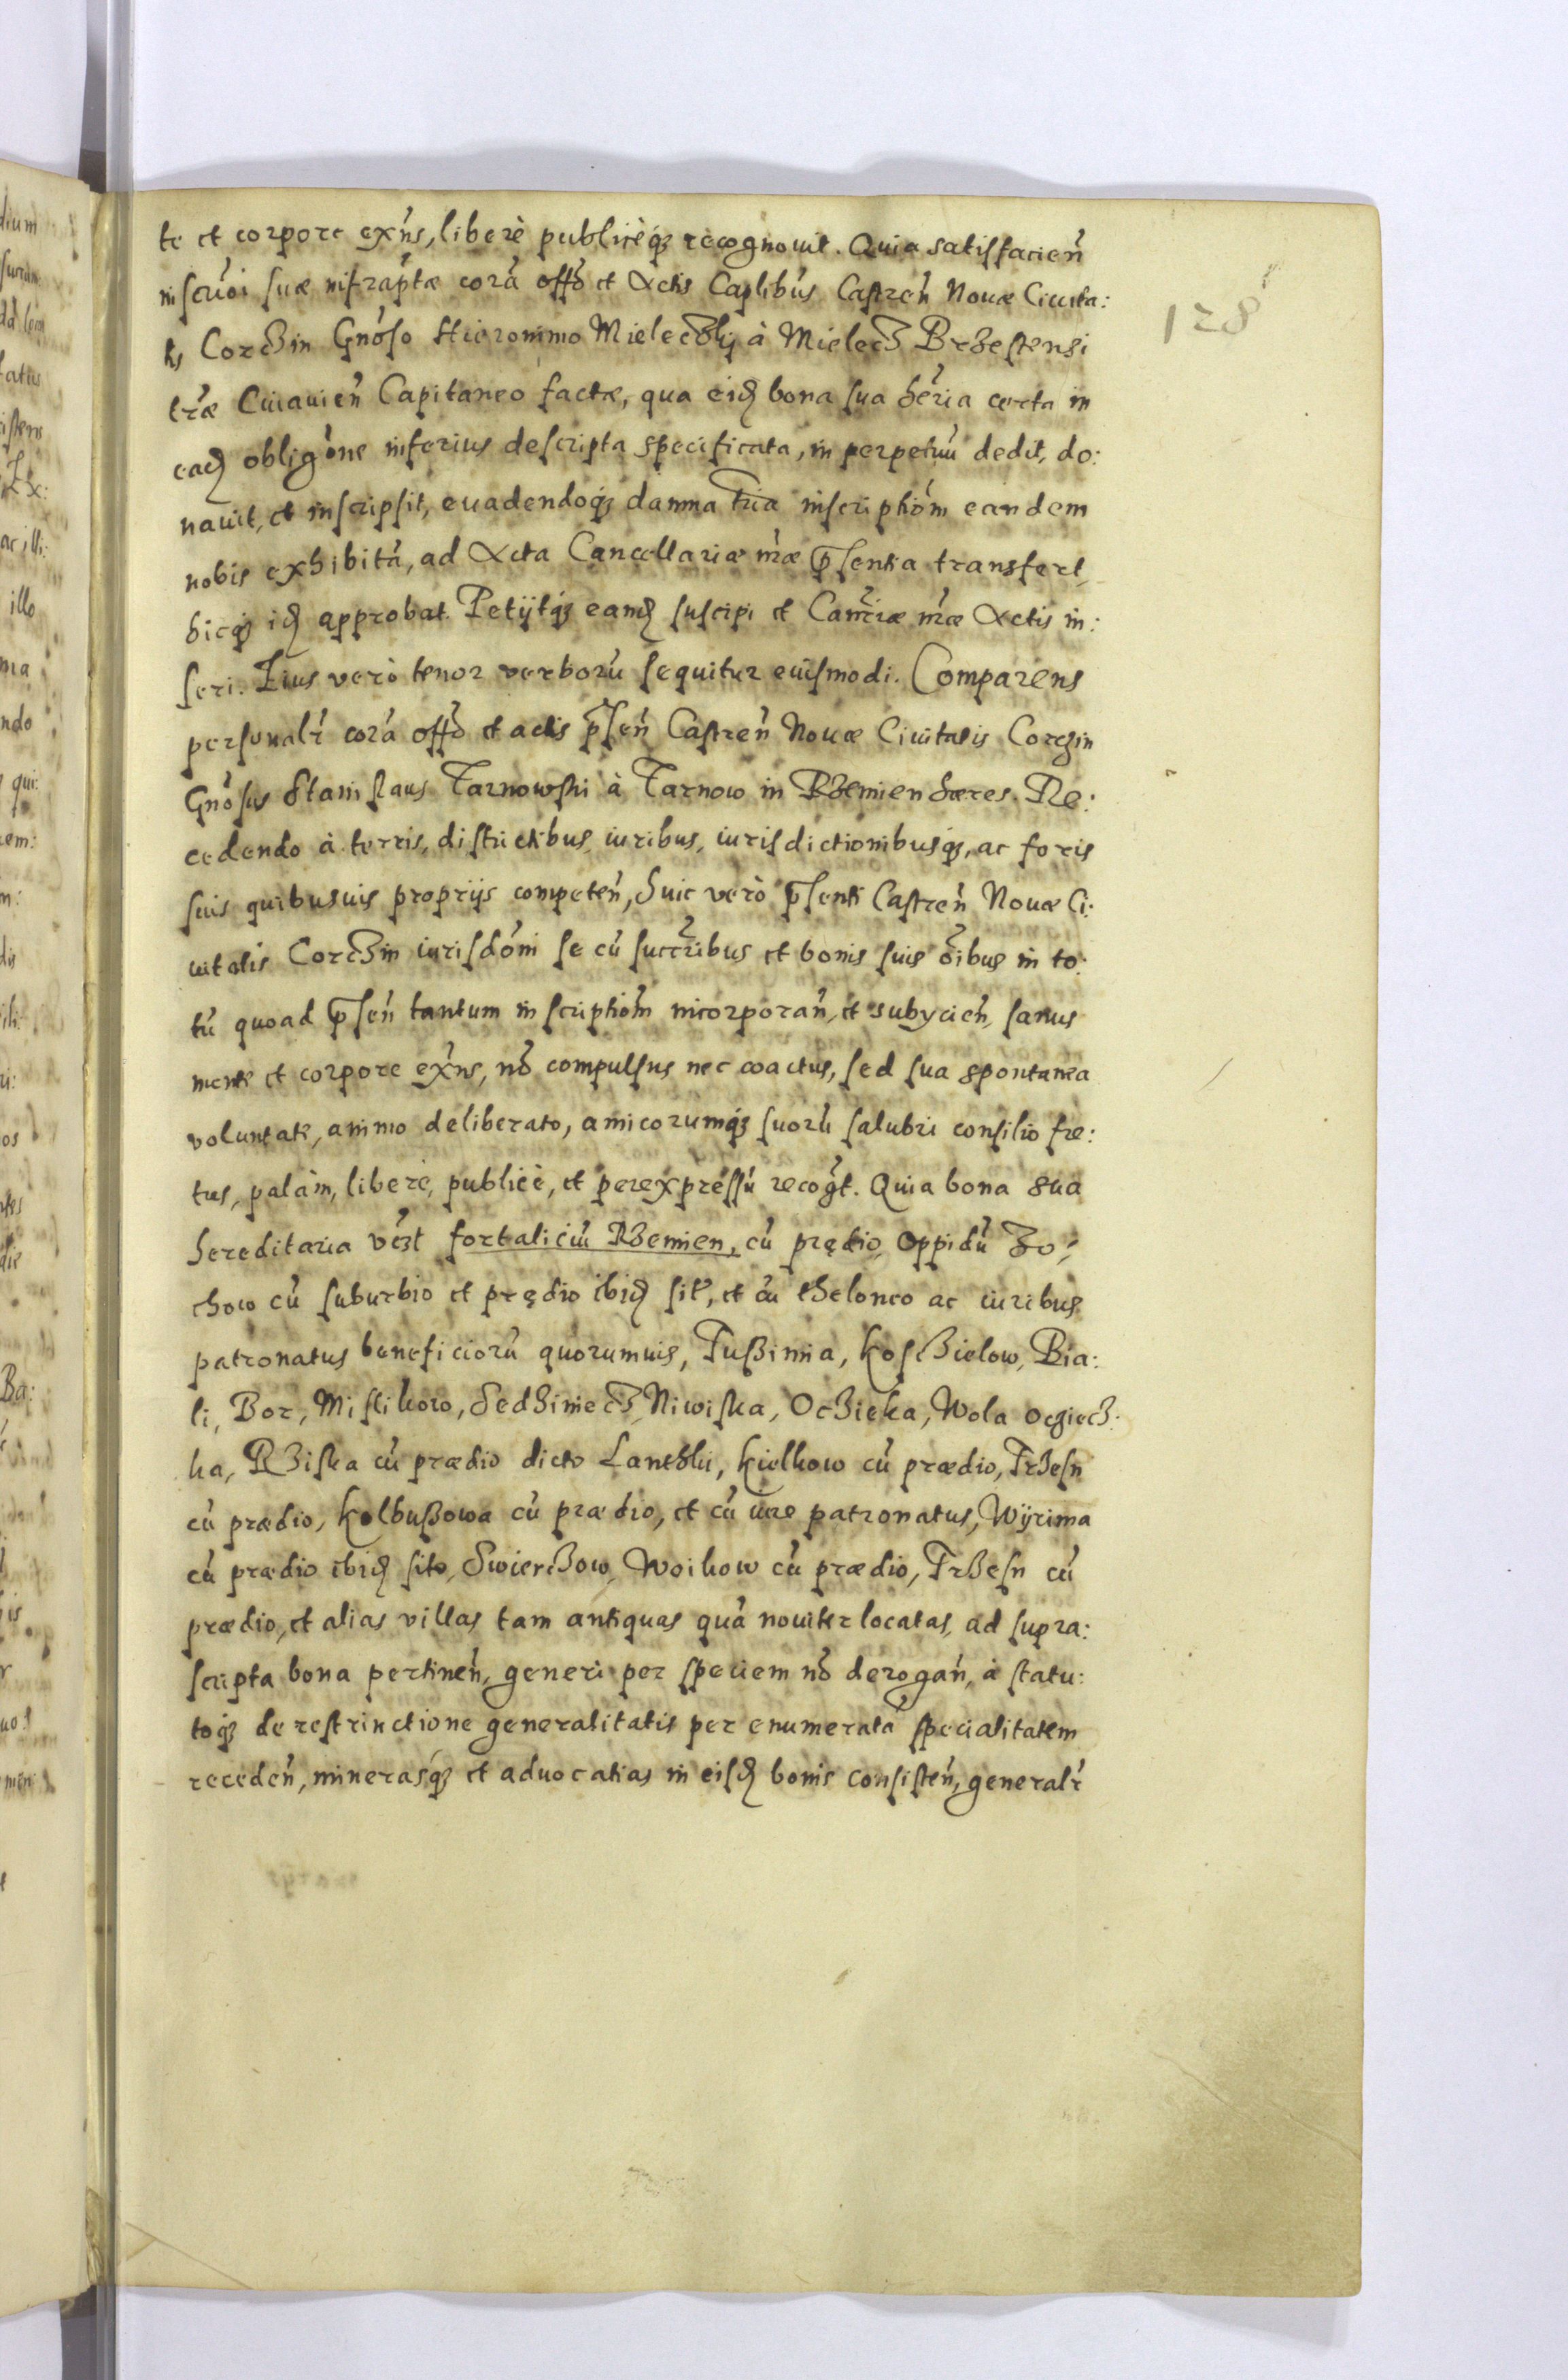 128
te et corpore exñs, liberè publicèq₃ recognouit. Quia satisfacieñ
inscrõi suæ infraptæ corã offõ et Actis Caplibus Castreñ Nouæ Ciuita:
tis Corczin Gnõso Hieronimo Mieleczkij à Mielecz Brzestensi
træ Cuiauieñ Capitaneo factæ, qua eidẽ bona sua hẽria certa in
eadẽ obligõne inferius descripta specificata, in perpetuũ dedit, do:
nauit, et inscripsit, euadendoq₃ damna tria inscriptiõm eandem
nobis exhibitã, ad Acta Cancellariæ nr̃æ p̃sentia transfert,
hicq₃ idẽ approbat. Petijtq₃ eamdẽ suscipi et Canc̃riæ nr̃æ Actis in:
seri. Eius verò tenor verborũ sequitur eiusmodi. Comparens
personalr̃ corã offõ et actis p̃señ Castreñ Nouæ Ciuitatis Corczin
Gnõsus Stanislaus Tarnowski à Tarnow in Rzemien hæres. Re:
cedendo à terris, districtibus, iuribus, iurisdictionibusq₃, ac foris
suis quibusuis proprijs competeñ, huic verò p̃senti Castreñ Nouæ Ci:
uitatis Corczin iurisdõni se cũ succr̃ibus et bonis suis õibus in to:
tũ quoad p̃señ tantum inscriptiõm incorporañ, et subycieñ, sanus
mente et corpore exñs, nõ compulsus nec coactus, sed sua spontanea
voluntate, animo deliberato, amicorumq₃ suorũ salubri consilio fre:
tus, palàm, liberè, publicè, et per expressũ recogt̃. Quia bona sua
hereditaria vczt fortaliciũ Rzemien, cũ prędio, Oppidũ Zo:
chow cũ suburbio et prędio ibidẽ sit̃, et cũ theloneo ac iuribus
patronatus beneficiorũ quorumuis, Tußimia, Kosczielow, Bia:
li, Bor, Mislikow, Sedzimecz, Niwiska, Oczieka, Wola Ocziecz:
ka, Rziska cũ prædio dicto Lanczki, Kielkow cũ prædio, Trzesn
cũ prædio, Kolbußowa cũ prædio, et cũ iure patronatus, Wÿrima
cũ prædio ibidẽ sito, Swierczow, Woikow cũ prædio, Trzesn cũ
prædio, et alias villas tam antiquas quã nouiter locatas, ad supra:
scripta bona pertineñ, generi per speciem nõ derogañ, à statu:
toq₃ de restrinctione generalitatis per enumeratã specialitatem
recedeñ, minerasq₃ et aduocatias in eisdẽ bonis consisteñ, generalr̃